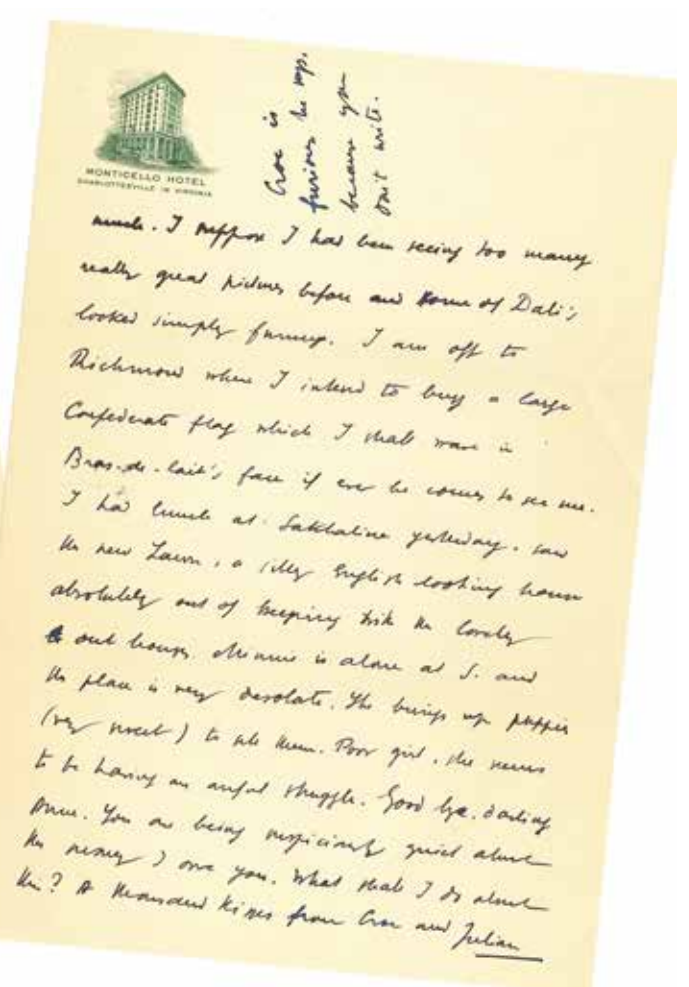 MONTICELLO HOTEL
CHARLOTTESVILLE IN VIRGINIA
Croc is
furious he says.
because you
don't write.
much. I suppose I had been seeing too many
really great pictures before and some of Dali's
looked simply funny. I am off to
Richmond where I intend to buy a large
Confederate flag which I shall wave in
Bras-de-lait's face if ever he comes to see me.
I had lunch at Sakhalin yesterday. saw
the new Lawn, a silly English looking house
absolutely out of keeping with the lovely
out houses. is alone at S. and
the place is very desolate. She brings up puppies
(very sweet) to sell them. Poor girl, she seems
to be having an awful struggle. Good bye, darling
. You are being suspiciously quiet about
the money I owe you. What shall I do about
this? A thousand kisses from Croc and Julian